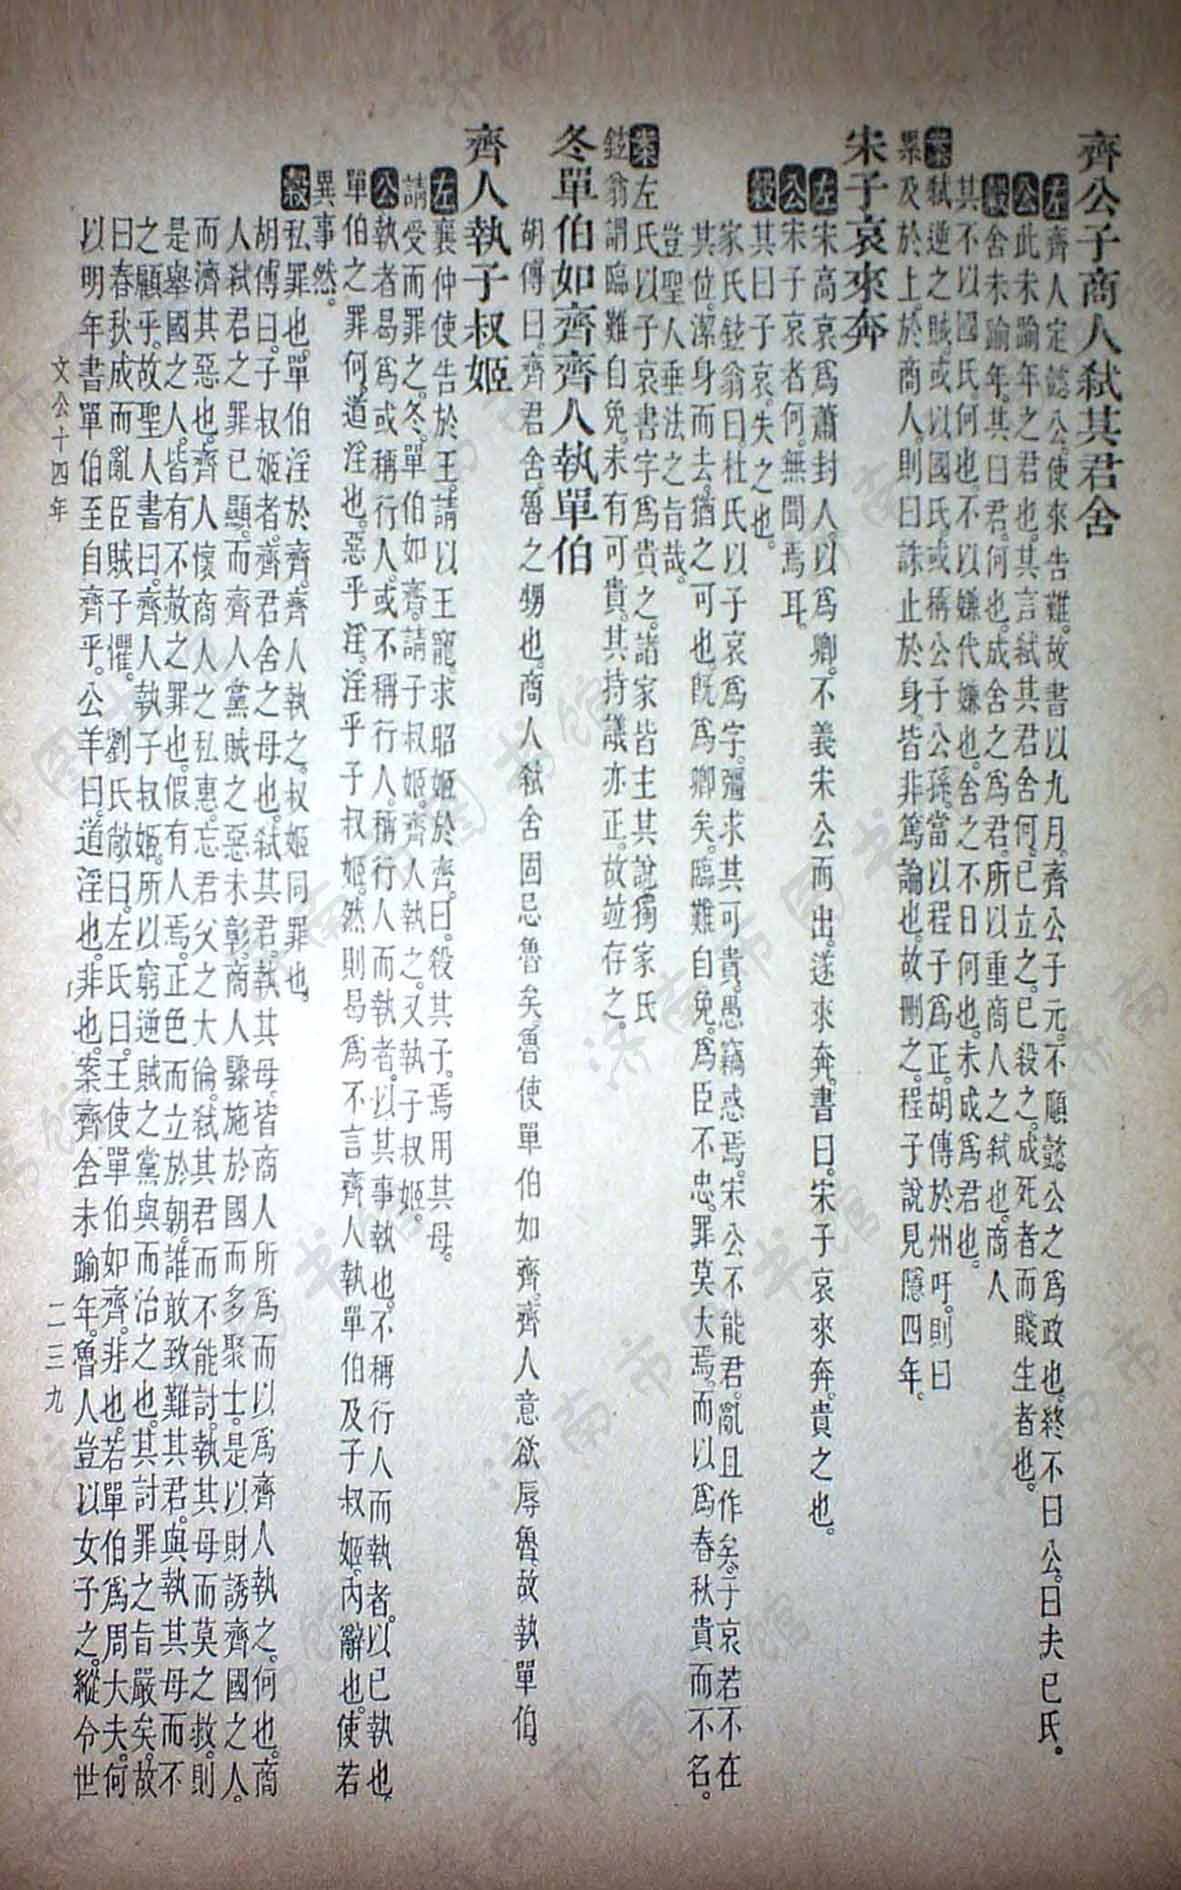 齊公子商人弒其君舍
左齊人定懿公使來告難故書以九月齊公子元不順懿公之爲政也終不曰公曰夫己氏。
公此未踰年之君也其言弒其君舍何已立之已殺之成死者而賤生者也。
穀舍未踰年其曰君何也成舍之爲君所以重商人之弒也商人
其不以國氏何也不以嫌代嫌也舍之不日何也未成爲君也。
案弒逆之賊或以國氏或稱公子公孫當以程子爲正胡傳於州吁則曰
累及於上於商人則曰誅止於身皆非篤論也故刪之程子說見隱四年。
宋子哀來奔
左宋高哀爲蕭封人以爲卿不義宋公而出遂來奔書曰宋子哀來奔貴之也。
公宋子哀者何無聞焉耳。
穀其曰子哀失之也。
家氏鉉翁曰杜氏以子哀爲字彊求其可貴愚竊惑焉宋公不能君亂且作矣子哀若不在
其位潔身而去猶之可也既爲卿矣臨難自免爲臣不忠罪莫大焉而以爲春秋貴而不名。
豈聖人垂法之旨哉。
案左氏以子哀書字爲貴之諸家皆主其說獨家氏
鉉翁謂臨難自免未有可貴其持議亦正故竝存之。
冬單伯如齊齊人執單伯
胡傳曰齊君舍魯之甥也商人弒舍固忌魯矣魯使單伯如齊齊人意欲辱魯故執單伯。
齊人執子叔姬
左襄仲使告於王請以王寵求昭姬於齊曰殺其子焉用其母。
請受而罪之冬單伯如齊請子叔姬齊人執之又執子叔姬。
公執者曷爲或稱行人或不稱行人稱行人而執者以其事執也不稱行人而執者以己執也
單伯之罪何道淫也惡乎淫淫乎子叔姬然則曷爲不言齊人執單伯及子叔姬內辭也使若
異事然。
穀私罪也單伯淫於齊齊人執之叔姬同罪也。
胡傳曰子叔姬者齊君舍之母也弒其君執其母皆商人所爲而以爲齊人執之何也商
人弒君之罪已顯而齊人黨賊之惡未彰商人驟施於國而多聚士是以財誘齊國之人。
而濟其惡也齊人懷商人之私惠忘君父之大倫弒其君而不能討執其母而莫之救則
是舉國之人皆有不赦之罪也假有人焉正色而立於朝誰敢致難其君與執其母而不
之顧乎故聖人書曰齊人執子叔姬所以窮逆賊之黨與而治之也其討罪之旨嚴矣故
曰春秋成而亂臣賊子懼 劉氏敞曰左氏曰王使單伯如齊非也若單伯爲周大夫何
以明年書單伯至自齊乎公羊曰道淫也非也案齊舍未踰年魯人豈以女子之縱令世
文公十四年
二三九